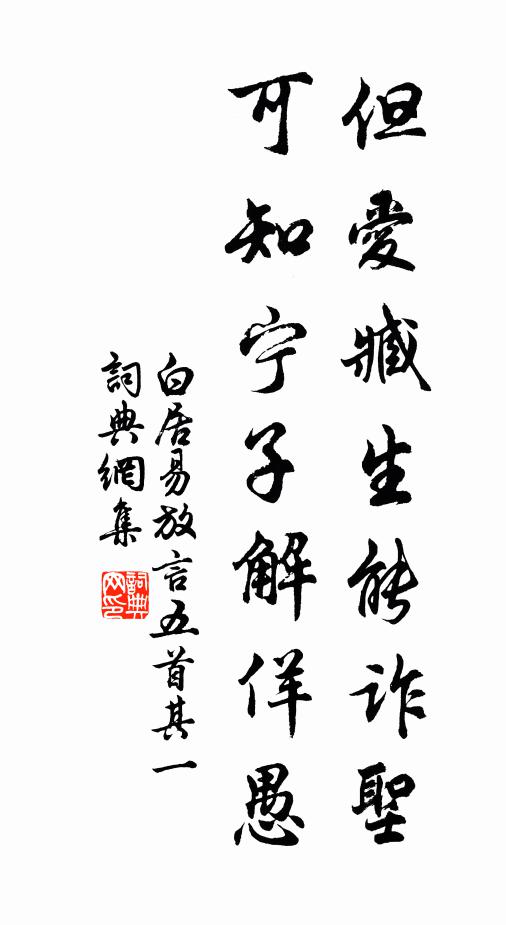 但愛臧生能詐聖
可知宁子解佯愚
白居易放言五首其一
詞典網集
詞典
网印